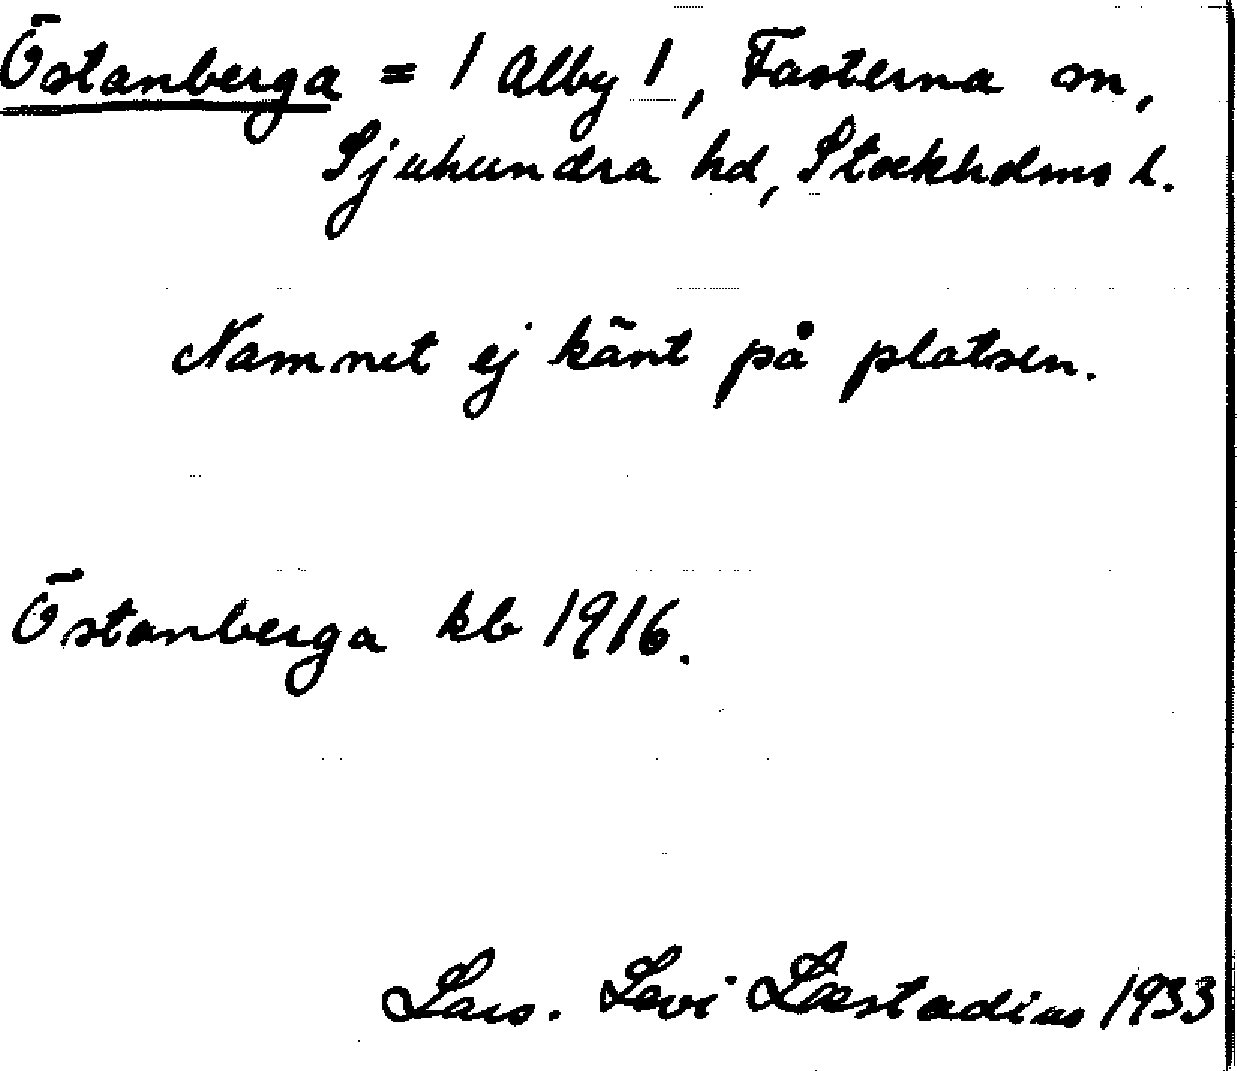 Östanberga = / Alby /, Fasterna sn,
Sjuhundra hd, Stockholms l.
Namnet ej känt på platsen.
Östanberga kb 1916.
Lars. Levi Læstadius 1933